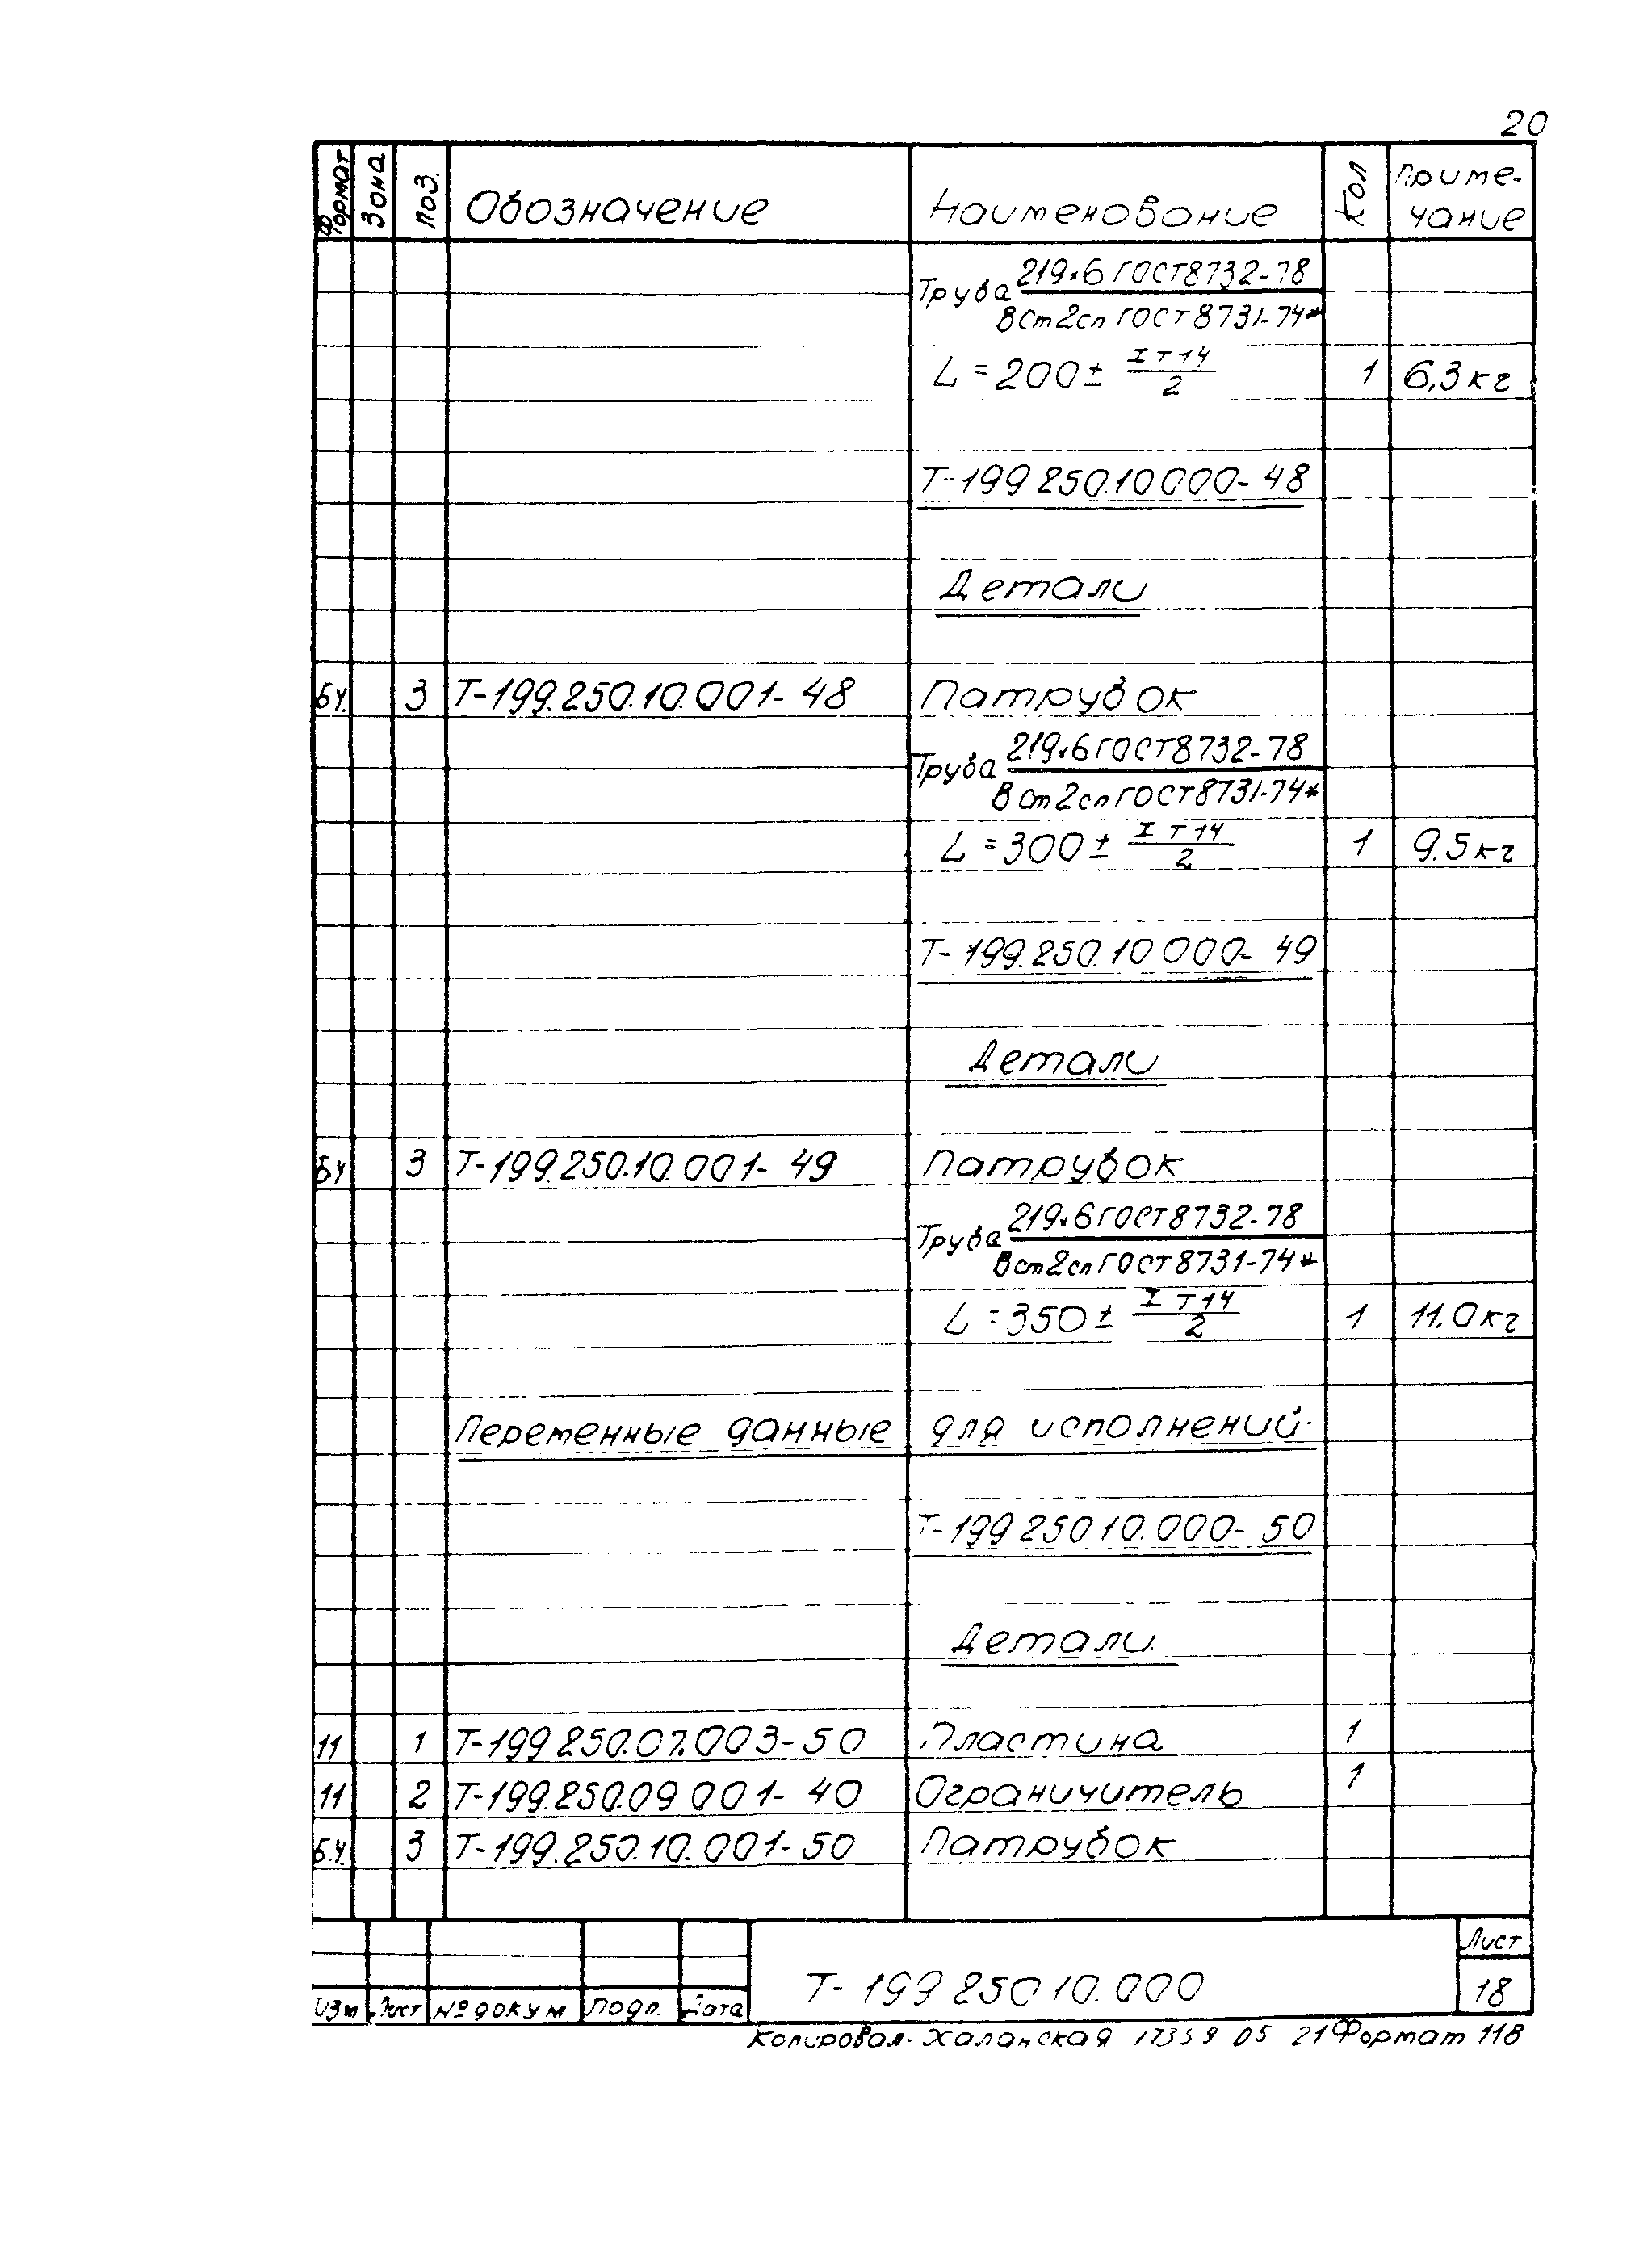 20
Формат Зона поз. Обозначение Наименование Кол Приме-
чание
Труба 219×6 ГОСТ 8732-78
В ст2сп ГОСТ 8731-74*
L = 200 ± IT14/2 1 6,3 кг
Т-199 250.10 000-48
Детали
БЧ. 3 Т-199.250.10.001-48 Патрубок
Труба 219×6 ГОСТ 8732-78
В ст2сп ГОСТ 8731-74*
L = 300 ± IT14/2 1 9.5 кг
Т-199.250.10 000-49
Детали
БЧ 3 Т-199.250.10.001-49 Патрубок
Труба 219×6 ГОСТ 8732-78
В ст2сп ГОСТ 8731-74*
L = 350 ± IT14/2 1 11.0 кг
Переменные данные для исполнений
Т-199 250 10.000-50
Детали
11 1 Т-199 250.07.003-50 Пластина 1
11 2 Т-199.250.09 001-40 Ограничитель 1
Б.Ч. 3 Т-199.250.10.001-50 Патрубок
Т-199 250 10.000
Лист
18
Изм Лист № докум Подп. Дата
Копировал-Халанская 17359 05 21 Формат 11В